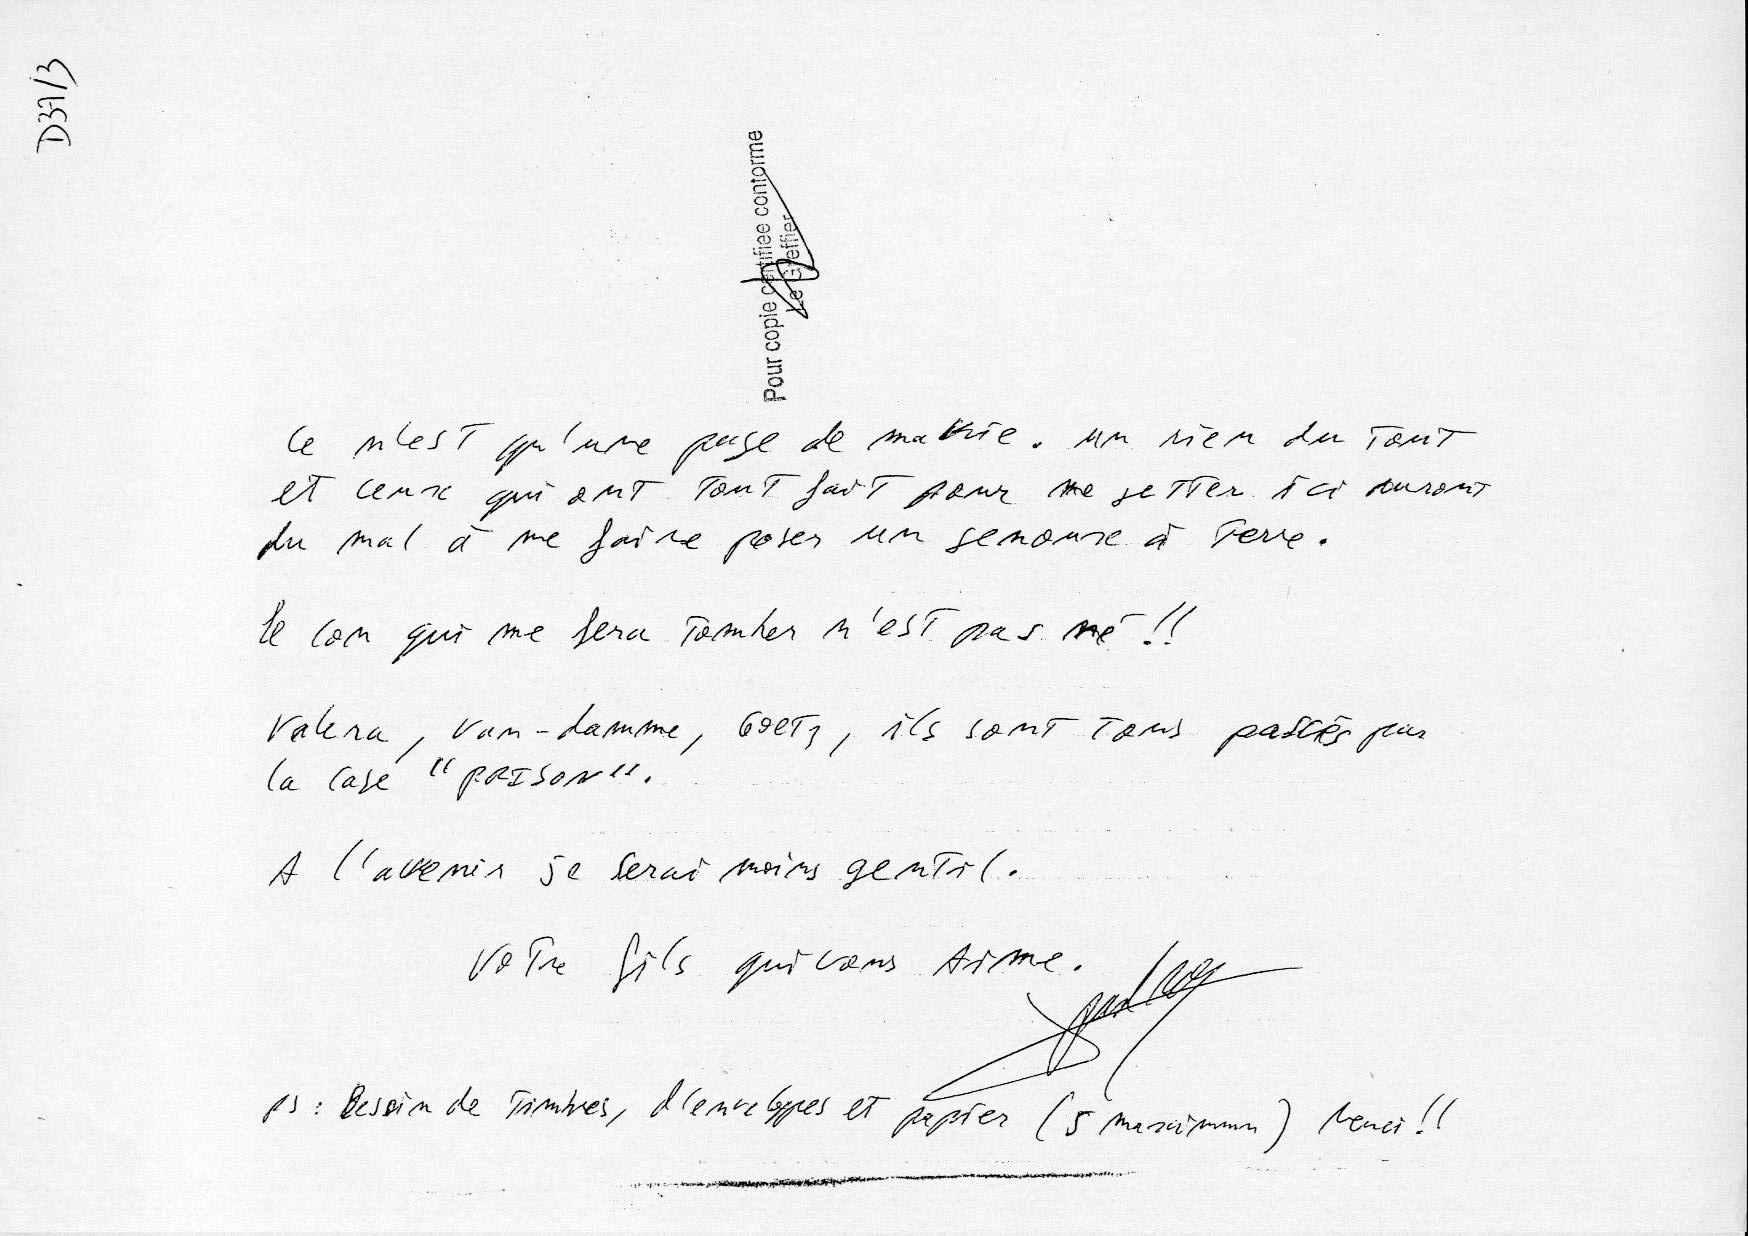 D37/3
Pour copie certifiee conforme
Le Greffier
Ce n'est qu'une page de ma vie. un rien du tout
et ceux qui ont tout fait pour me jetter ici auront
du mal à me faire poser un genoux à terre.
le con qui me fera tomber n'est pas né !!
Valera, Van-damme, Goetz, ils sont tous passés par
la case "PRISON".
A l'avenir je serai moins gentil.
Votre fils qui vous Aime.
ps : Besoin de timbres, d'enveloppes et papier (5 maximum) Merci !!